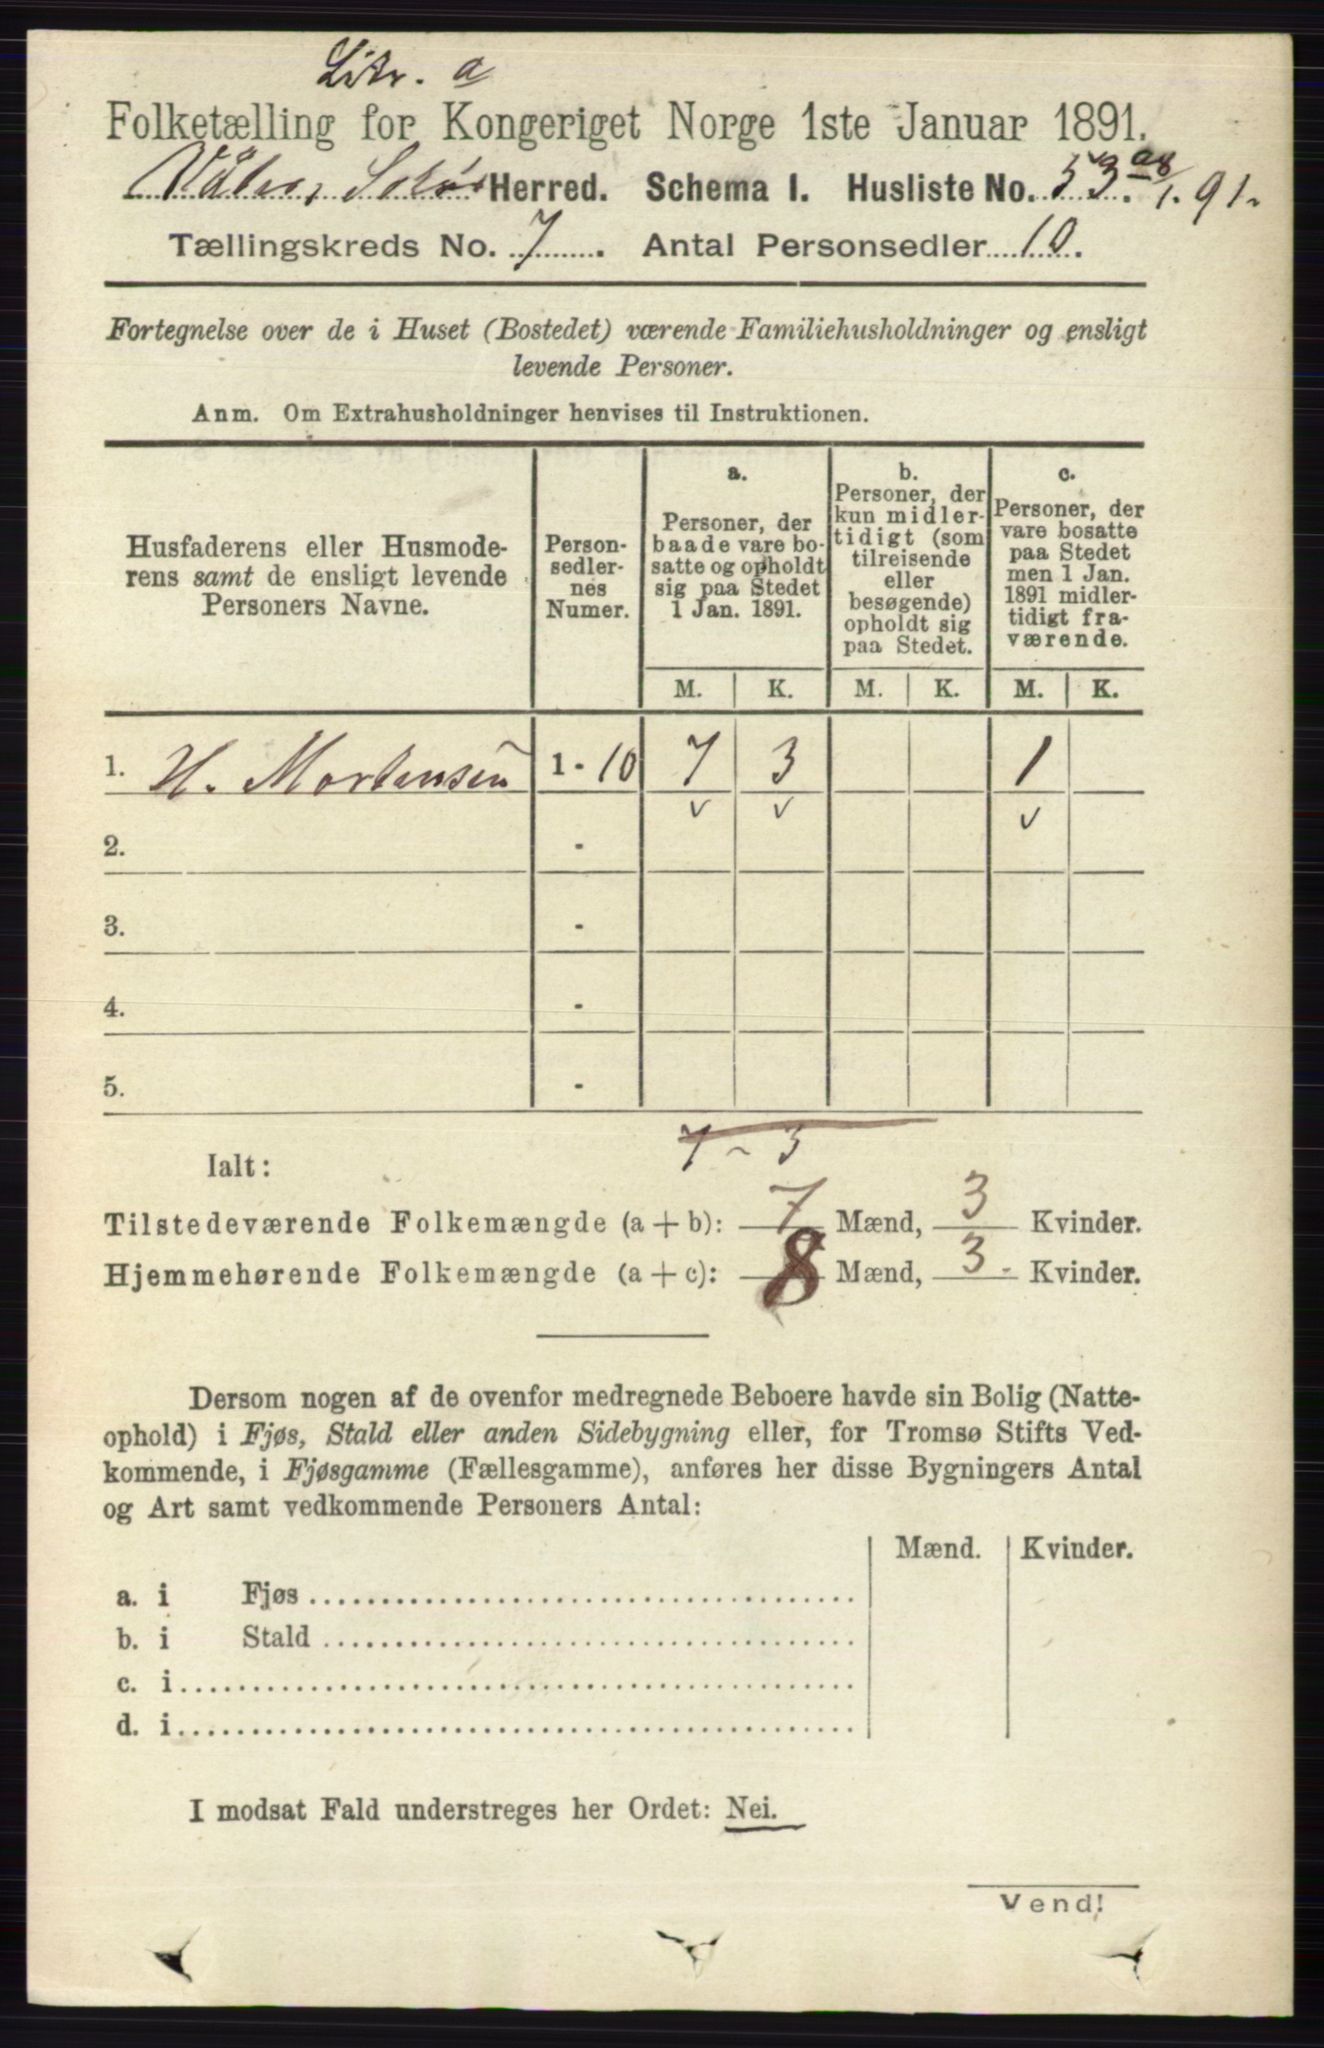 Litr. a
Folketælling for Kongeriget Norge 1ste Januar 1891.
Våler, Solør Herred. Schema I. Husliste No. 53. a 8/1. 91.
Tællingskreds No. 7. Antal Personsedler 10.
Fortegnelse over de i Huset (Bostedet) værende Familiehusholdninger og ensligt
levende Personer.
Anm. Om Extrahusholdninger henvises til Instruktionen.
Husfaderens eller Husmode-
rens samt de ensligt levende
Personers Navne.
Person-
sedler-
nes
Numer.
a.
Personer, der
baade vare bo-
satte og opholdt
sig paa Stedet
1 Jan. 1891.
b.
Personer, der
kun midler-
tidigt (som
tilreisende
eller
besøgende)
opholdt sig
paa Stedet.
c.
Personer, der
vare bosatte
paa Stedet
men 1 Jan.
1891 midler-
tidigt fra-
værende.
M. K. M. K. M. K.
1. H. Mortensen 1 - 10 7 3 1
v v v
2. -
3. -
4. -
5. -
7 - 3
Ialt:
Tilstedeværende Folkemængde (a + b): 7 Mænd, 3 Kvinder.
Hjemmehørende Folkemængde (a + c): 8 Mænd, 3. Kvinder.
Dersom nogen af de ovenfor medregnede Beboere havde sin Bolig (Natte-
ophold) i Fjøs, Stald eller anden Sidebygning eller, for Tromsø Stifts Ved-
kommende, i Fjøsgamme (Fællesgamme), anføres her disse Bygningers Antal
og Art samt vedkommende Personers Antal:
Mænd. Kvinder.
a. i Fjøs
b. i Stald
c. i
d. i
I modsat Fald understreges her Ordet: Nei.
Vend!